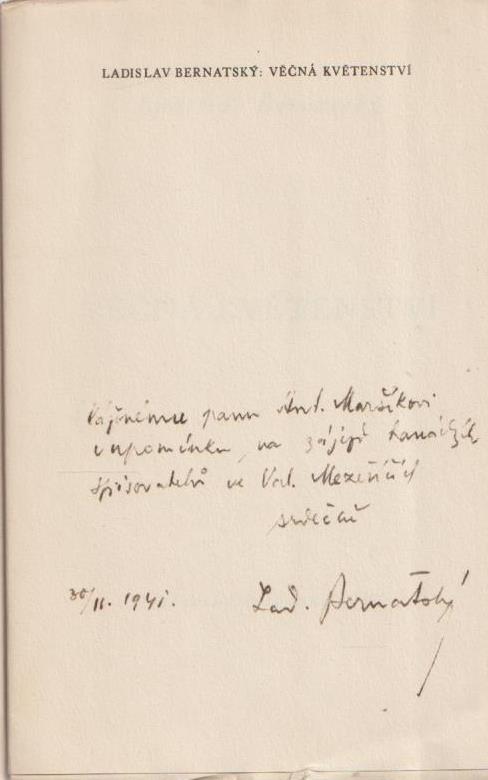 LADISLAV BERNATSKÝ: VĚČNÁ KVĚTENSTVÍ
Váženému panu Ant. Maršíkovi
vzpomínku na zájezd hanáckých
spisovatelů ve Val. Meziříčí
srdečně
30/11. 1941. Lad. Bernatský